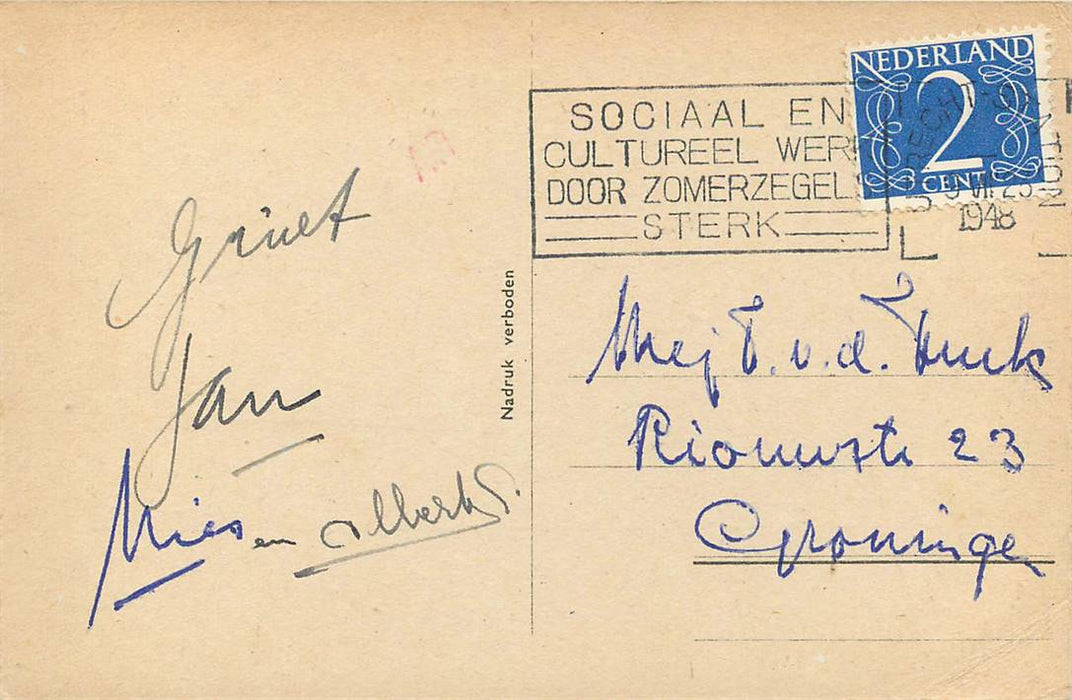 NEDERLAND
2
CENT
SOCIAAL EN
CULTUREEL WERK
DOOR ZOMERZEGELS
STERK
1948
Nadruk verboden
Groet
Jan
Mies en Albert
Mej T. v. d.
23
Groningen